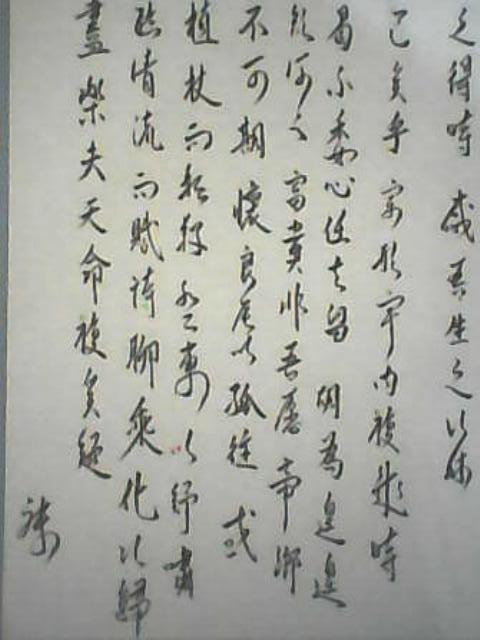 之得時 感吾生之行休
已矣乎 寓形宇內複幾時
曷不委心任去留 胡為遑遑
欲何之 富貴非吾願 帝鄉
不可期 懷良辰以孤往 或
植杖而耘耔 登東皋以舒嘯
臨清流而賦詩 聊乘化以歸
盡 樂夫天命複奚疑